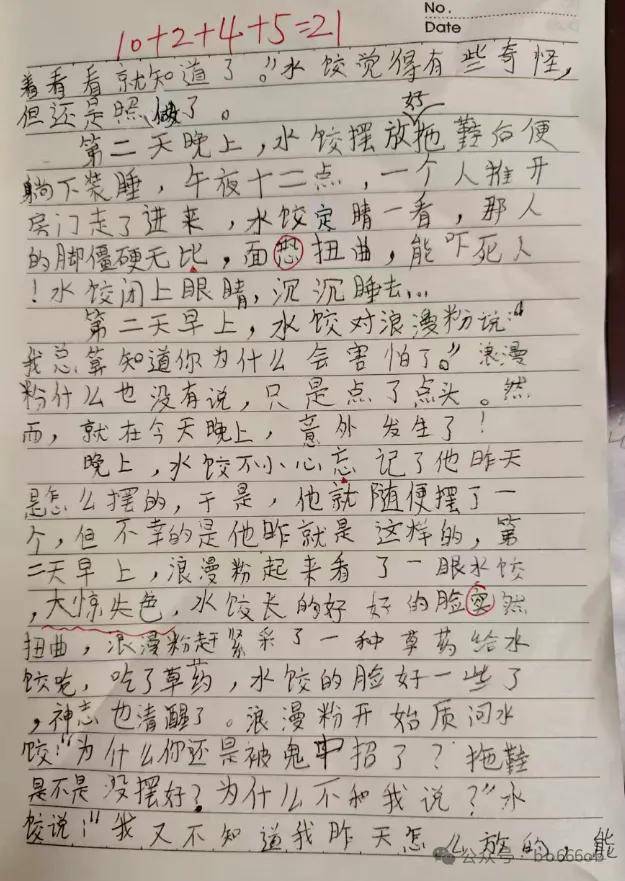 No.
Date
10+2+4+5=21
着看看就知道了。”水饺觉得有些奇怪,
但还是照做了。
好
第二天晚上,水饺摆放拖鞋后便
躺下装睡,午夜十二点,一个人推开
房门走了进来,水饺定睛一看,那人
的脚僵硬无比,面恐扭曲,能吓死人
!水饺闭上眼睛,沉沉睡去...
第二天早上,水饺对浪漫粉说“
我总算知道你为什么会害怕了。”浪漫
粉什么也没有说,只是点了点头。然
而,就在今天晚上,意外发生了!
晚上,水饺不小心忘记了他昨天
是怎么摆的,于是,他就随便摆了一
个,但不幸的是他昨就是这样的,第
二天早上,浪漫粉起来看了一眼水饺
,大惊失色,水饺长的好好的脸突然
扭曲,浪漫粉赶紧采了一种草药给水
饺吃,吃了草药,水饺的脸好一些了
,神志也清醒了。浪漫粉开始质问水
饺:“为什么你还是被鬼中招了?拖鞋
是不是没摆好?为什么不和我说?”水
饺说:“我又不知道我昨天怎么放的,能
公众号·bb666ob